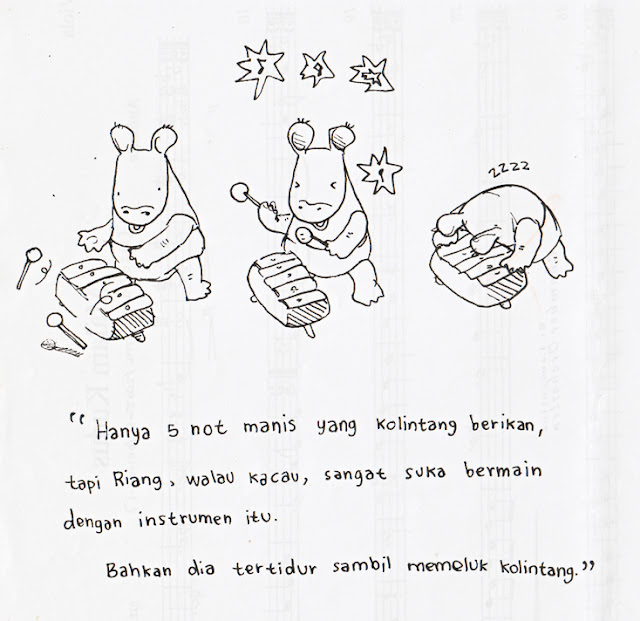 zzzz
“Hanya 5 not manis yang kolintang berikan,
tapi Riang, walau kacau, sangat suka bermain
dengan instrumen itu.
Bahkan dia tertidur sambil memeluk kolintang.”